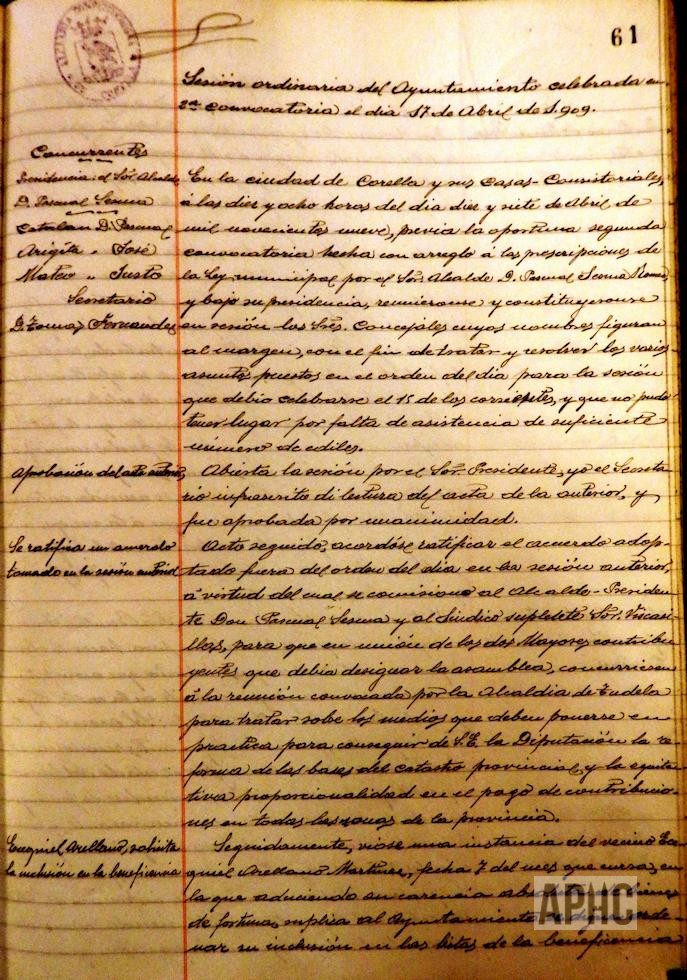 61
Sesión ordinaria del Ayuntamiento celebrada en
2ª convocatoria el dia 17 de Abril de 1.909.
Concurrentes
Presidencia: el Sor. Alcalde
D. Pascual Sesma
Catalan D. Pascual
Arigita " José
Mateo " Justo
Secretario
D. Tomas Fernandez
En la ciudad de Corella y sus Casas-Consistoriales,
á las diez y ocho horas del dia diez y siete de Abril de
mil novecientos nueve, previa la oportuna segunda
convocatoria hecha con arreglo á las prescripciones de
la Ley municipal por el Sor. Alcalde D. Pascual Sesma
y bajo su presidencia, reunieronse y constituyeronse
en sesión los Sres. Concejales cuyos nombres figuran
al margen, con el fin de tratar y resolver los varios
asuntos puestos en el orden del dia para la sesión
que debió celebrarse el 15 de los corrientes, y que no pudo
tener lugar por falta de asistencia de suficiente
número de ediles.
Aprobación del acta anterior
Abierta la sesión por el Sor. Presidente, yo el Secreta
rio infrascrito di lectura del acta de la anterior, y
fue aprobada por unanimidad.
Se ratifica un acuerdo
tomado en la sesión anterior
Acto seguido, acordóse ratificar el acuerdo adop-
tado fuera del orden del dia en la sesión anterior,
á virtud del cual se comisionó al Alcalde-Presiden
te Don Pascual Sesma y al Sindico suplete Sor. Viscasi
llas, para que en unión de los dos Mayores contribu
yentes que debia designar la asamblea, concurriesen
á la reunión convocada por la Alcaldia de Tudela
para tratar sobe los medios que deben ponerse en
practica para conseguir de S.E. la Diputación la re
forma de las bases del catastro provincial, y la equita
tiva proporcionalidad en el pago de contribucio-
nes en todas las zonas de la provincia.
Ezequiel Arellano, solicita
la inclusión en la beneficencia
Seguidamente, vióse una instancia del vecino Eze
quiel Arellano Martinez, fecha 7 del mes que cursa, en
la que aduciendo su carencia de bienes
de fortuna, suplica al Ayuntamiento
nar su inclusión en las listas de la beneficencia
APHC